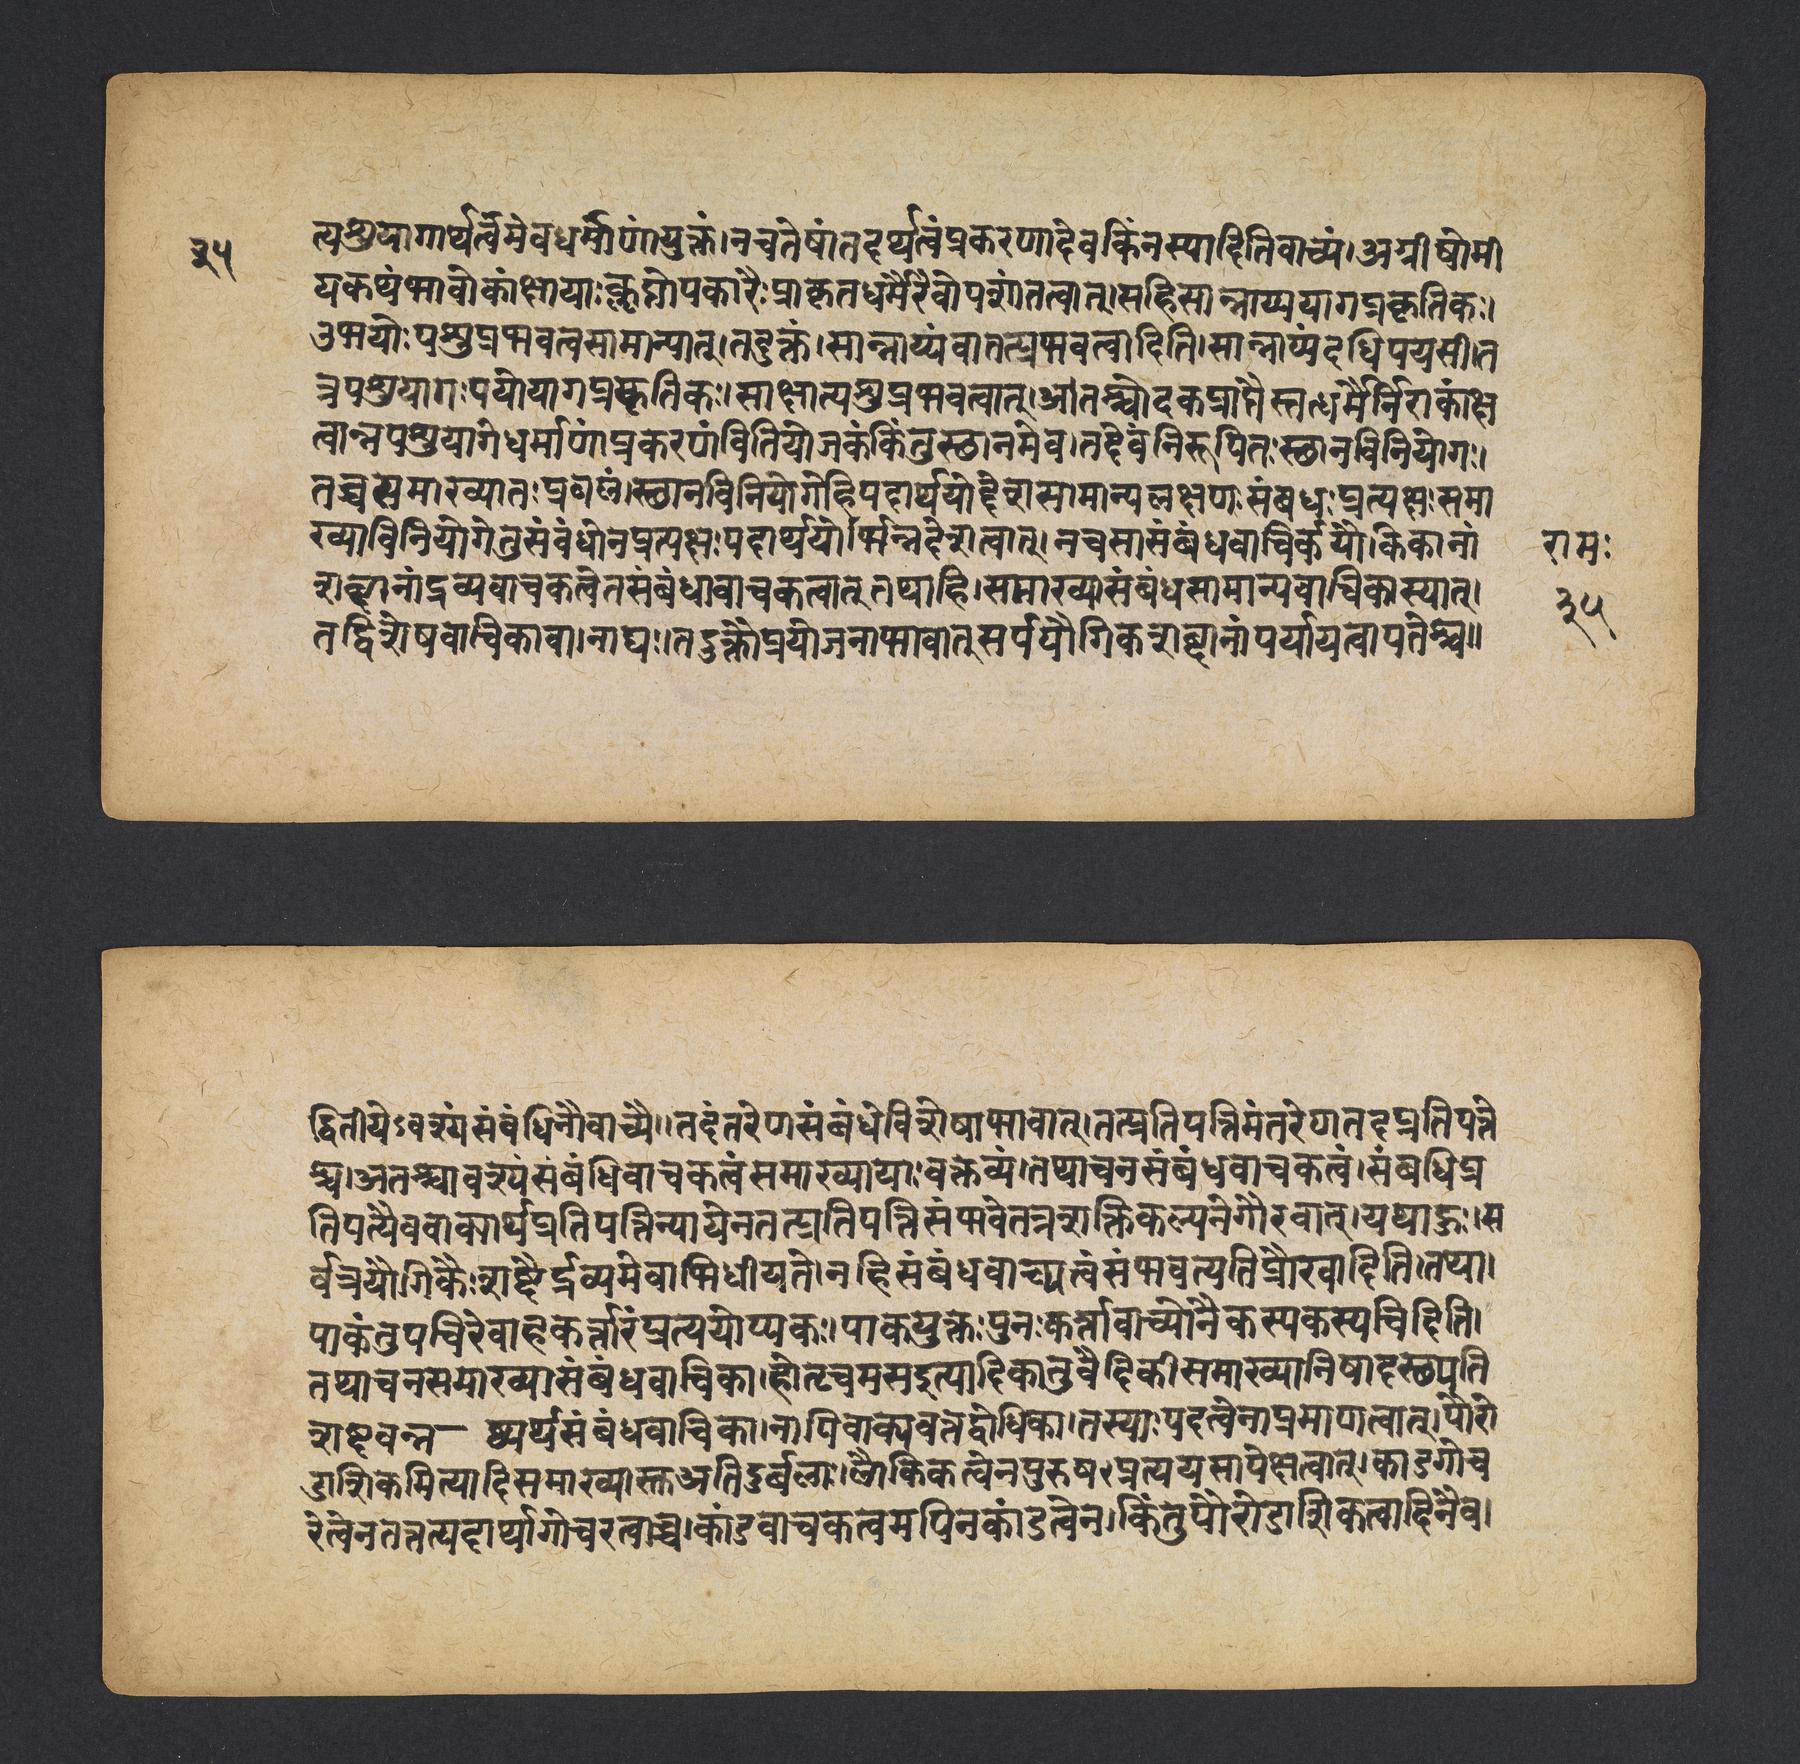 ३५
त्पशुयागार्थत्वमेवधर्माणांयुक्तं।नचतेषांतदर्थत्वंप्रकरणादेवकिंनस्यादितिवाच्यं।अग्नीषोमी
यकथंभावाकांक्षायाःक्लृप्तोपकारैःप्राकृतधर्मैरेवोपशांतत्वात्।सहिसान्नाय्ययागप्रकृतिकः।
उभयोःपशुप्रभवत्वसामान्यात्।तदुक्तं।सान्नाय्यंवातत्प्रभवत्वादिति।सान्नाय्यंदधिपयसी।त
त्रपशुयागःपयोयागप्रकृतिकः।साक्षात्पशुप्रभवत्वात्।अतश्चोदकप्राप्तैस्तद्धर्मैर्निराकांक्ष
त्वान्नपशुयागेधर्माणांप्रकरणंवितियोजकंकिंतुस्छानमेव।तदेवंनिरूपितःस्छानविनियोगः।
तच्चसमाख्यातःप्रबलं।स्छानविनियोगेहिपदार्थयोर्देशसामान्यलक्षणःसंबंधःप्रत्यक्षःसमा
ख्याविनियोगेतुसंबंधोनप्रत्यक्षःपदार्थयोर्भिन्नदेशत्वात्।नचसासंबंधवाचिकयौगिकानां
शब्दानांद्रव्यवाचकत्वेतसंबंधावाचकत्वात्तथाहि।समाख्यासंबंधसामान्यवाचिकास्यात्।
तद्विशेषवाचिकावा।नाद्यः।तदुक्तौप्रयोजनाभावात्सर्वयौगिकशब्दानांपर्यायत्वापत्तेश्च॥
रामः
३५
द्वितीयेऽवश्यंसंबंधिनौवाच्यौ॥तदंतरेणसंबंधेविशेषाभावात्।तत्प्रतिपत्तिमंतरेणतदप्रतिपत्ते
श्च।अतश्चावश्यंसंबंधिवाचकत्वंसमाख्यायाःवक्तव्यं।तथाचनसंबंधवाचकत्वं।संबंधिप्र
तिपत्यैववाक्यार्थप्रतिपत्तिन्यायेनतत्प्रतिपत्तिसंभवेतत्रशक्तिकल्पनेगौरवात्।यथाहुः।स
र्वत्रयौगिकैःशब्दैर्द्रव्यमेवाभिधीयते।नहिसंबंधवाच्यत्वंसंभवत्यतिगौरवादिति।तथा।
पाकंतुपचिरेवाहकर्त्तारंप्रत्ययोप्यकः।पाकयुक्तःपुनःकर्त्तावाच्योनैकस्यकस्यचिदिति।
तथाचनसमाख्यासंबंधवाचिका।होतृचमसइत्यादिकातुवैदिकीसमाख्यानिषादस्छपति
शब्दवन्न— ष्ठ्यर्थसंबंधवाचिका।नापिवाक्यवत्तद्बोधिका।तस्याःपदत्वेनाप्रमाणत्वात्।पौरो
डाशिकमित्यादिसमाख्यास्तअतिदुर्बलाः।लौकिकत्वेनपुरुषप्रत्ययसापेक्षत्वात्।काडगोच
रत्वेनतत्तत्पदार्थागोचरत्वाच्च।कांडवाचकत्वमपिनकांडत्वेन।किंतुपौरोडाशिकत्वादिनैव।